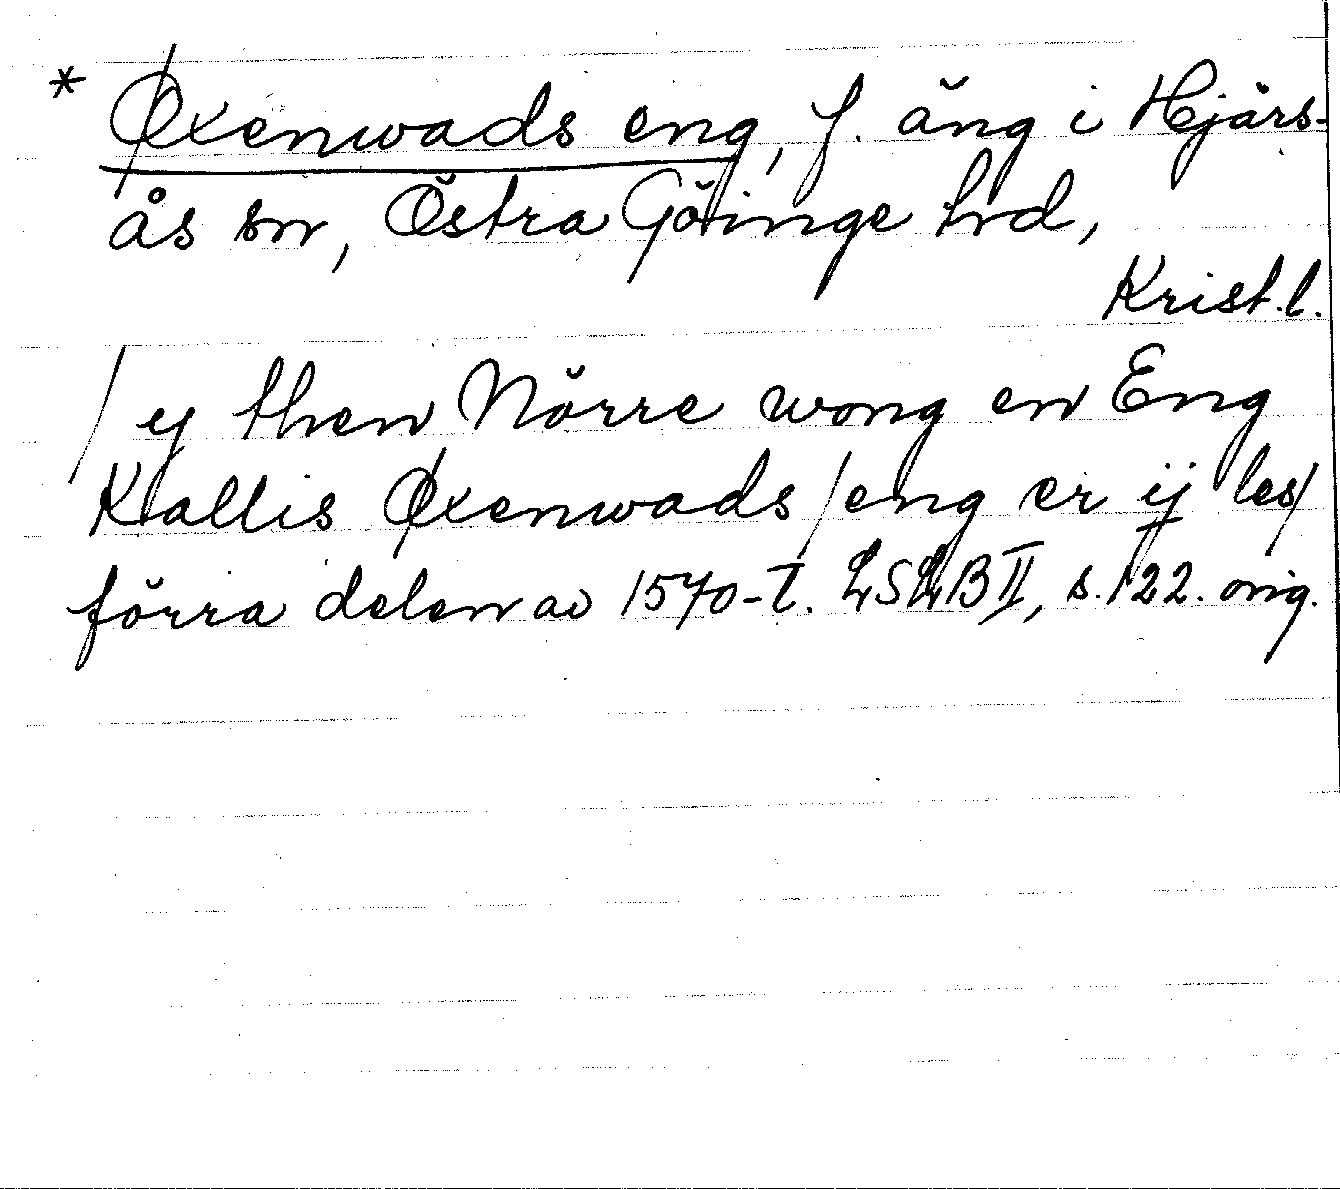 * Øxenwads eng, f. äng i Hjärs-
ås sn, Östra Göinge hd,
Krist.l.
/ ij then Nörre wong en Eng
Kallis Øxenwads / eng er ij les /
förra delen av 1570-t. LSLB II, s. 122. orig.